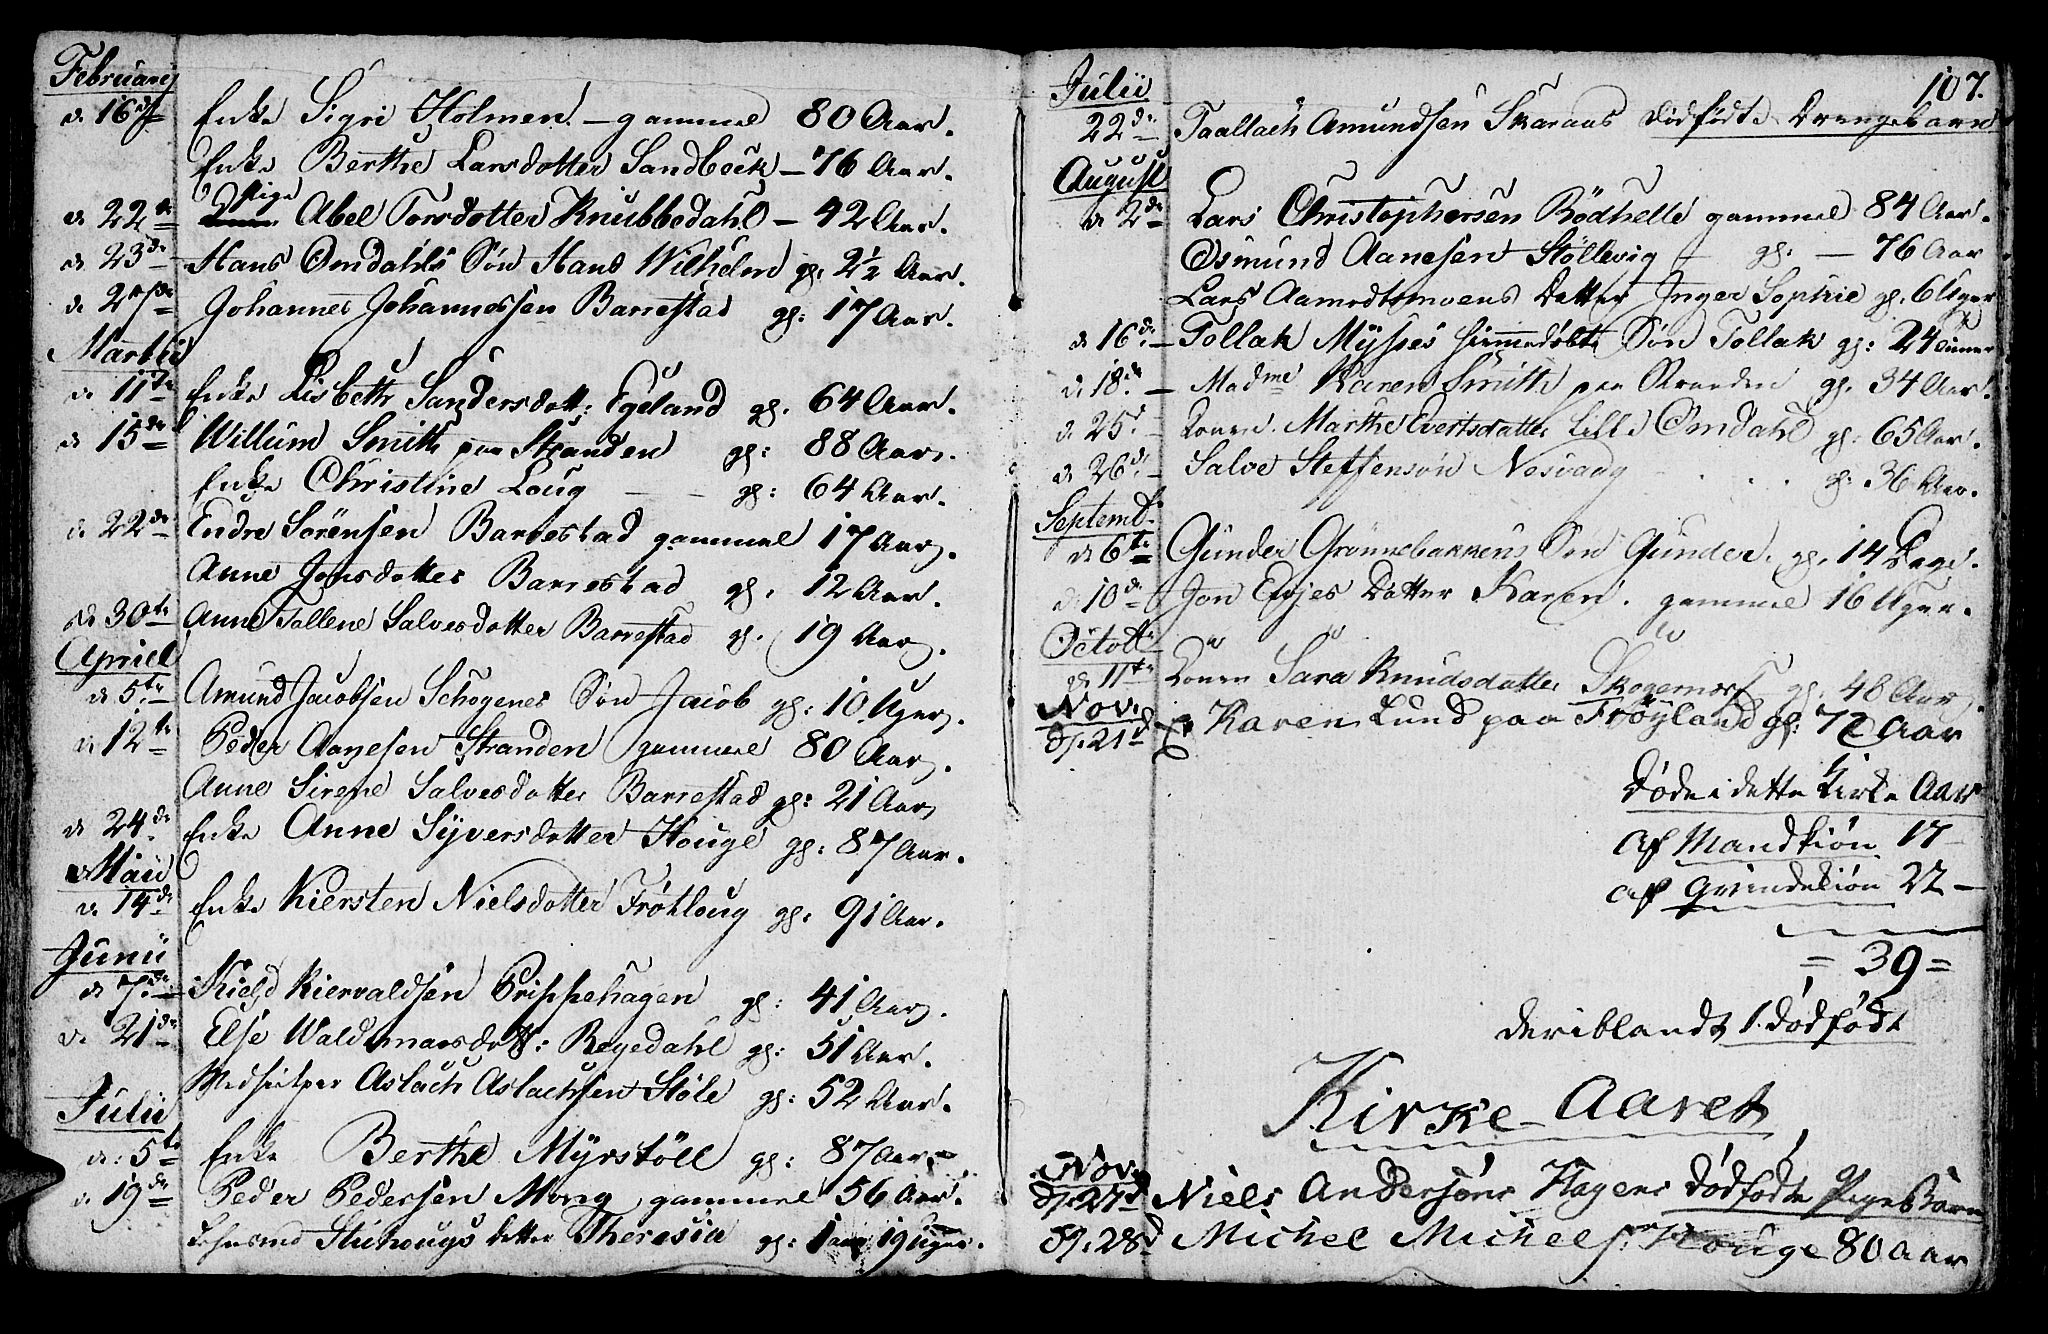 Februarij
d. 16de Enke Sigri Holmen – gammel 80 Aar.
Enke Berthe Larsdotter Sandbeck – 76 Aar.
Pige
d 22de Abel Torsdotter Knubbedahl – 42 Aar.
d 23de Hans Omdahls Søn Hans Wilhelm gl. 2½ Aar.
d. Johannes Johannessen Barrestad gl: 17 Aar.
Martii
d. 11te Enke Lisbeth Sandersdott: Egeland gl. 64 Aar.
d 15de Willum Smith paa Stranden gl: 88 Aar.
Enke Christine Loug – – gl: 64 Aar.
d. 22de Endre Sörensen Barrestad gammel 17 Aar.
Anne Jonsdotter Barrestad gl. 12 Aar.
d 30te Anne Tallene Salvesdotter Barrestad gl. 19 Aar.
Apriil
d 5te Amund Jacobsen Schogenes Søn Jacob gl: 10 Uger.
d 12te Peder Aanesen Stranden gammel 80 Aar.
Anne Sirene Salvesdotter Barrestad gl: 21 Aar
d 24de Enke Anne Syversdotter Houge gl: 87 Aar.
Maii
d. 14de Enke Kiersten Nielsdotter Frøtloug gl: 91 Aar.
Junii
d 7de Kield Kiervaldsen Prippehagen gl: 41 Aar.
d. 21de Else Waldemarsdott: Regedahl gl: 51 Aar.
Medhielper Aslach Aslachsen Støle gl: 52 Aar.
Julii
d: 5te Enke Berthe Myrstöll gl: 87 Aar
d 19de Peder Pedersen Mong gammel 56 Aar.
Stuhougs dotter Theresia gl: 1 aar 19 Uger.
107.
Julii
22de Taallach Amundsen Skaraas dødfødte Drengebarn
August
d 2de Lars Christophersen Bødhelle gammel 84 Aar.
Osmund Aanesen Støllevig – gl: – 76 Aar
Lars Aamodtsmoens Datter Inger Sophie gl. 6 Uger
d 16de – Tollak Mysses hiemmedøbte Søn Tollak gl: 24 Timer
d. 18de – Madme Karen Smith paa Stranden gl. 34 Aar.
d. 25de – Konen Marthe Evertsdatter Lille Omdahl gl: 65 Aar.
d 26de – Salve Steffensøn Nesvaag . . . . gl: 36 Aar.
Septemb.
d 6te Gunder Grønnebakkens Søn Gunder. gl. 14 Dage.
d. 10de Jon Eyjes Datter Karen. gammel 16 Uger.
Octob
d 11te Konen Sara Knudsdatter Skogernes gl. 48 Aar
Nov.
d. 21d Karen Lund paa Frøyland gl: 72 Aar
Døde i dette Kirke Aar
af Mandkiøn 17 –
af Qvindekiøn 22 –
= 39 =
deriblandt 1. dødfødt
Kirke-Aaret
Nov.
d. 27d Niels Andersøns Hagens dødfødte Pige Barn
d. 28d Michel Michels: Houge 80 Aar